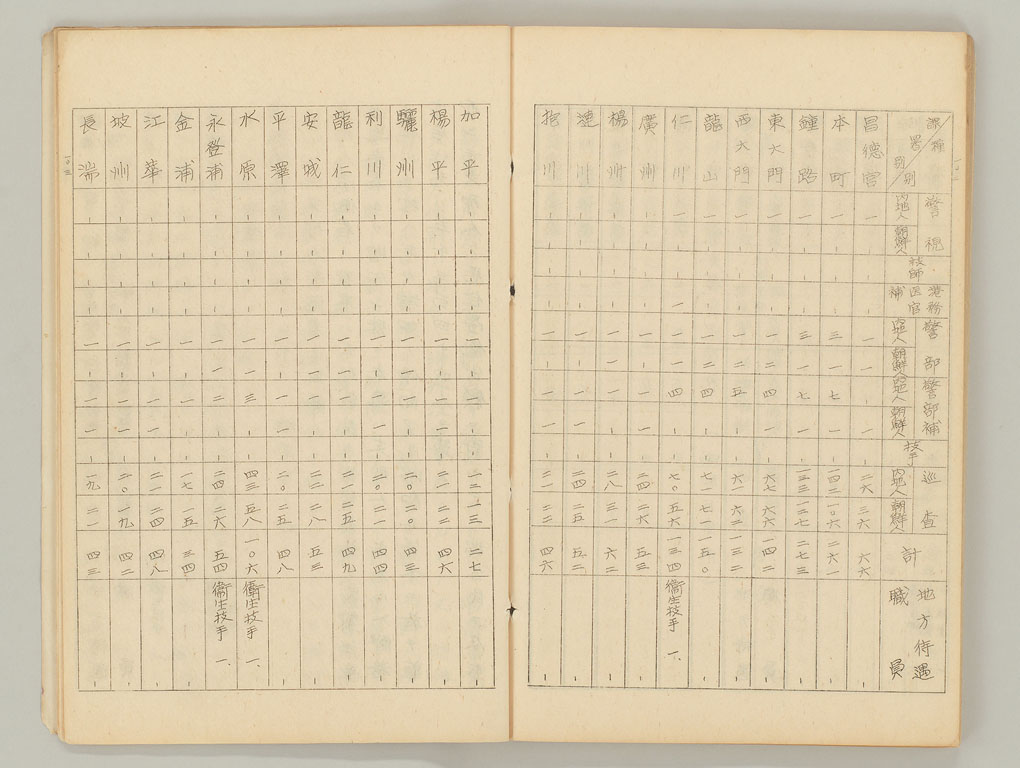 課署別
種別
警視 內地人 朝鮮人
技師
港務医官補
警部 內地人 朝鮮人
警部補 內地人 朝鮮人
技手
巡査 內地人 朝鮮人
計
地方待遇職員
昌德宮 一 一 一 一 二六 三六 六六
本町 一 三 一 七 一 一四二 一〇六 二六一
鍾路 一 三 一 七 一 一三三 一二七 二七三
東大門 一 一 二 四 一 六七 六六 一四二
西大門 一 一 二 五 六一 六二 一三二
龍山 一 一 二 四 七一 七一 一五〇
仁川 一 一 一 一 四 七〇 五六 一三四 衞生技手 一、
廣州 一 一 一 二四 二六 五三
楊州 一 一 一 二八 三一 六二
漣川 一 一 二四 二五 五二
抱川 一 一 二一 二二 四六
加平 一 一 一二 一三 二七
楊平 一 一 一 二一 二二 四六
驪州 一 一 二〇 二〇 四三
利川 一 一 一 二〇 二一 四四
龍仁 一 一 二一 二五 四九
安城 一 一 二二 二八 五三
平澤 一 一 一 二〇 二五 四八
水原 一 三 四三 五八 一〇六 衞生技手 一、
永登浦 一 一 二 二四 二六 五四 衞生技手 一、
金浦 一 一 一七 一五 三四
江華 一 一 一 二一 二四 四八
坡州 一 一 一 二〇 一九 四二
長湍 一 一 一 一九 二一 四三